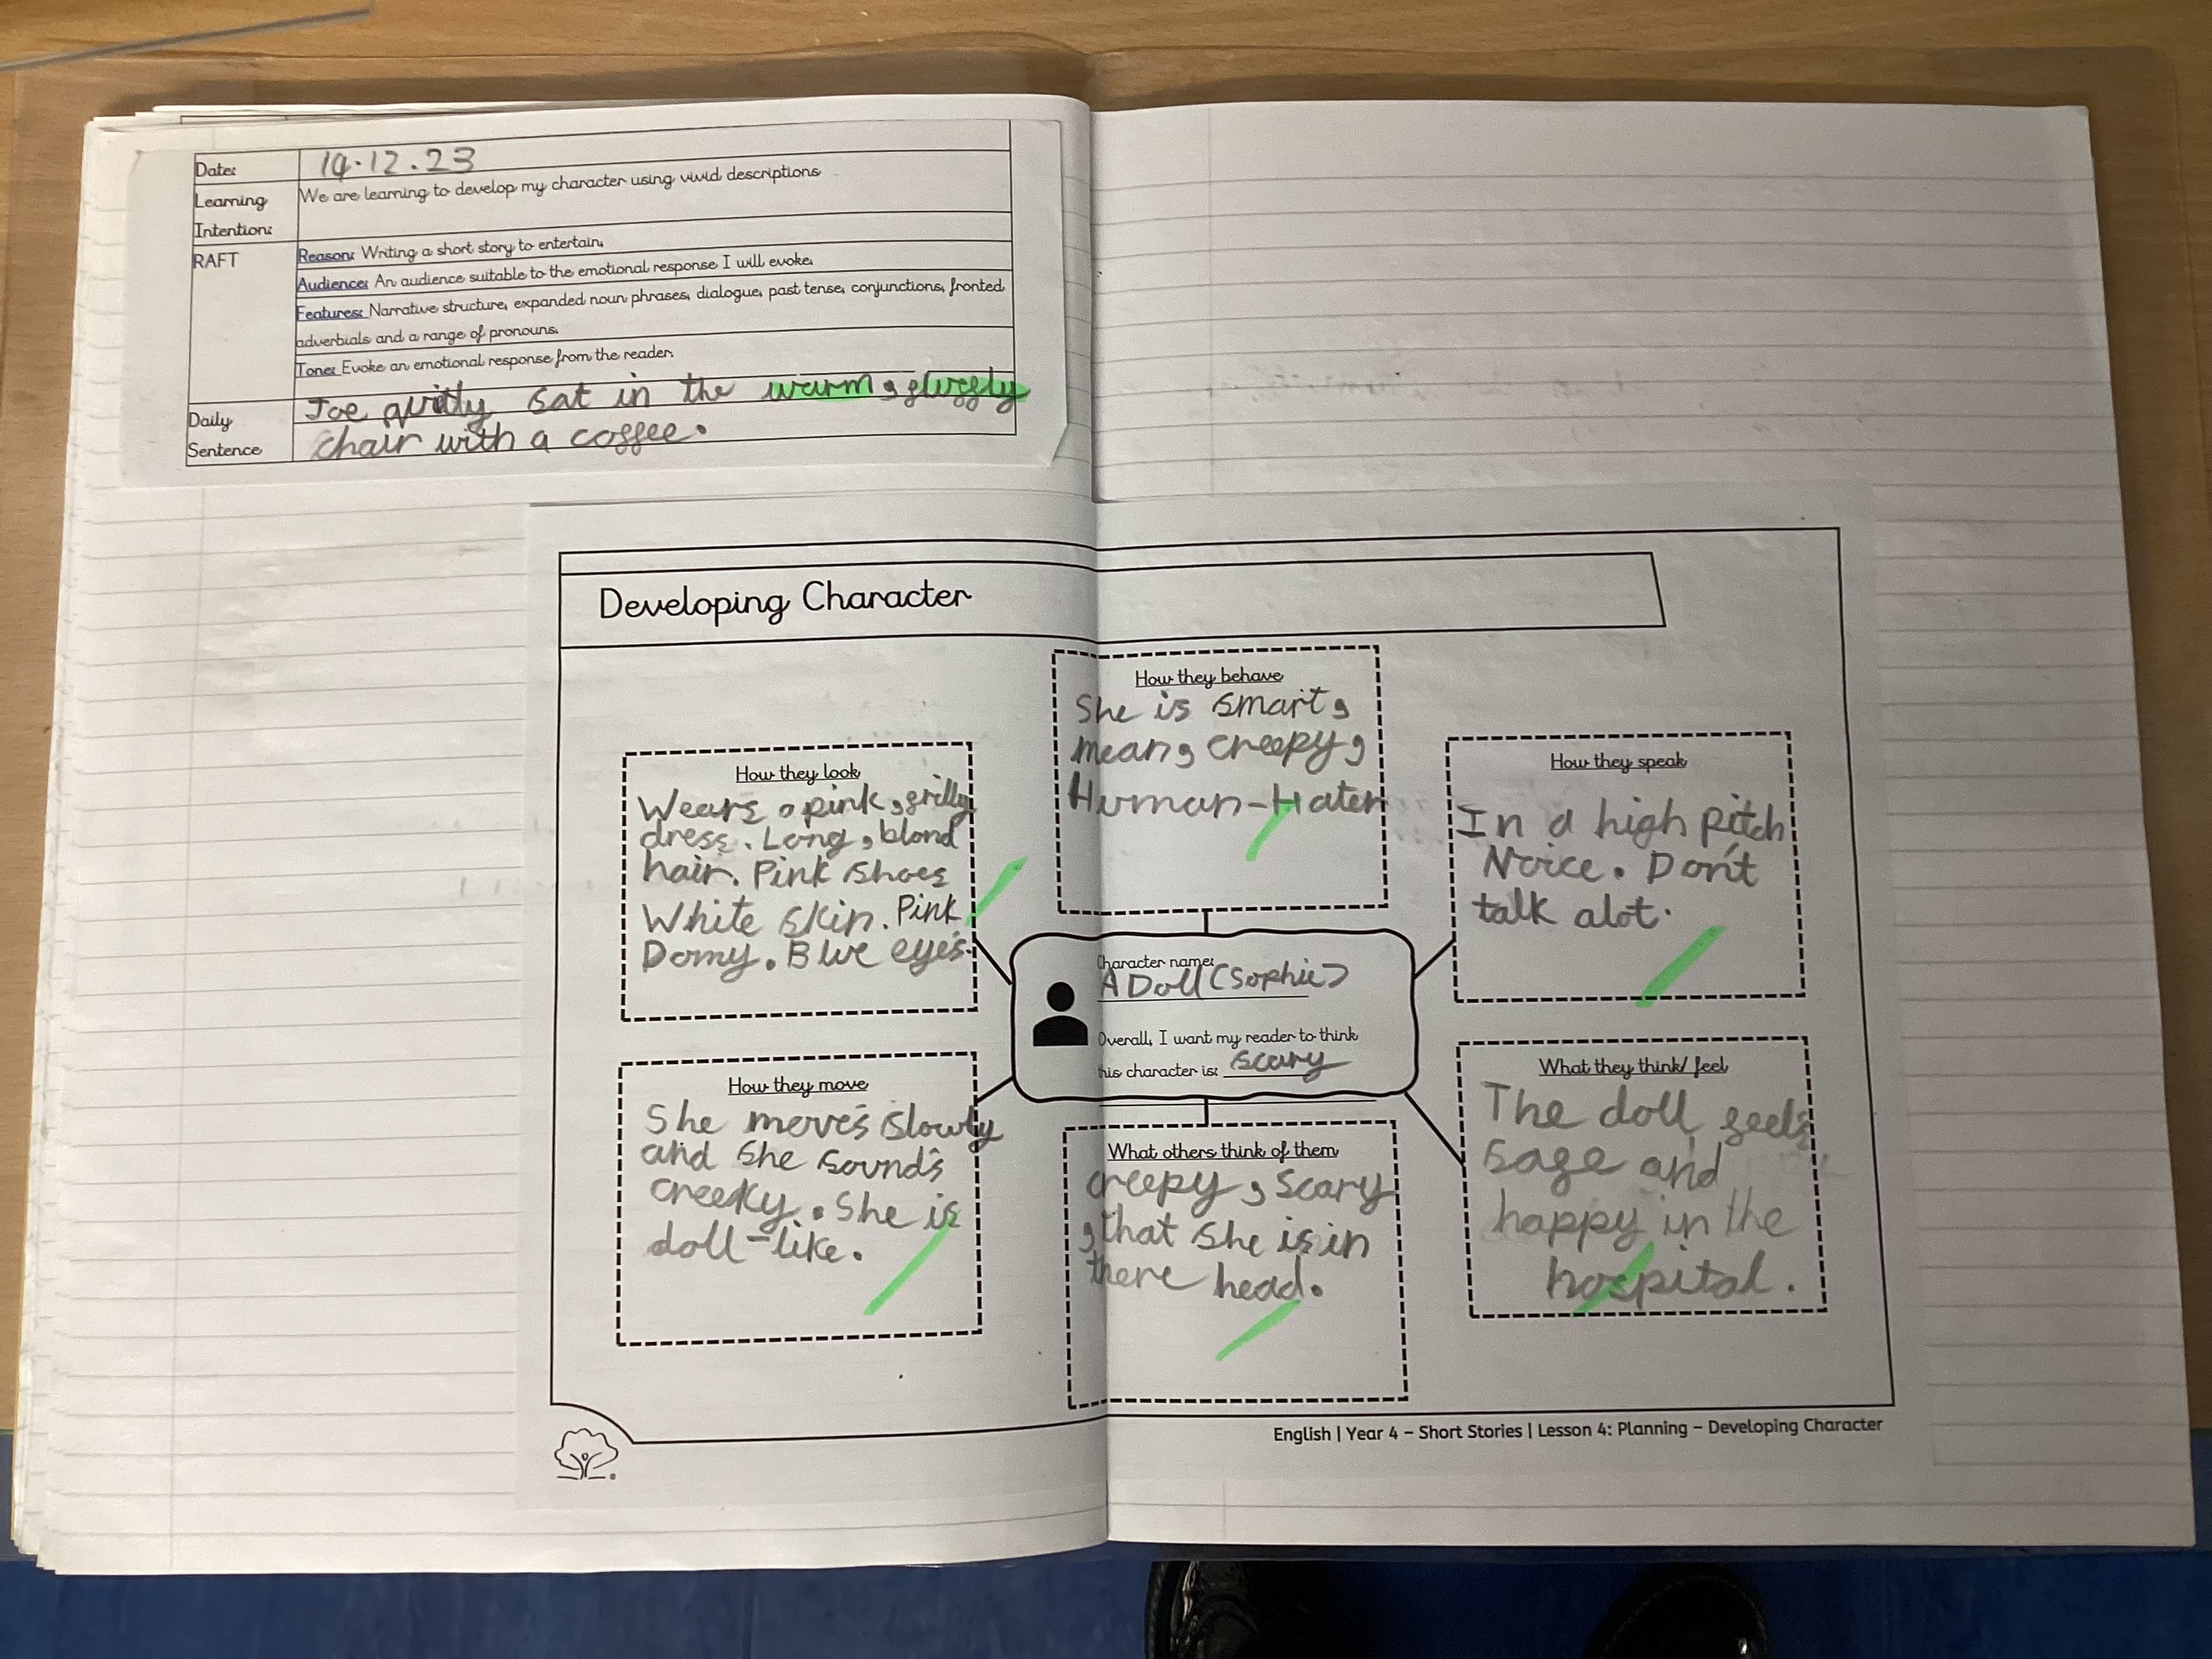 Date:
14.12.23
Learning
Intention:
We are learning to develop my character using vivid descriptions
RAFT
Reason: Writing a short story to entertain.
Audience: An audience suitable to the emotional response I will evoke.
Features: Narrative structure, expanded noun phrases, dialogue, past tense, conjunctions, fronted
adverbials and a range of pronouns.
Tone: Evoke an emotional response from the reader.
Daily
Sentence
Joe sat in the warm,
chair with a coffee.
Developing Character
How they behave
She is smart,
mean, creepy,
Human-Hater
How they look
Wears a pink, frilly
dress. Long, blond
hair. Pink shoes
White skin. Pink
Domy. Blue eye's.
How they speak
In a high pitch
Noice. Don't
talk alot.
Character name:
A Doll (Sophie)
Overall, I want my reader to think
this character is: scary
How they move
She move's slowly
and she sound's
creeky. She is
doll-like.
What others think of them
creepy, scary
, that she is in
there head.
What they think/ feel
The doll feels
safe and
happy in the
hospital.
English | Year 4 – Short Stories | Lesson 4: Planning – Developing Character